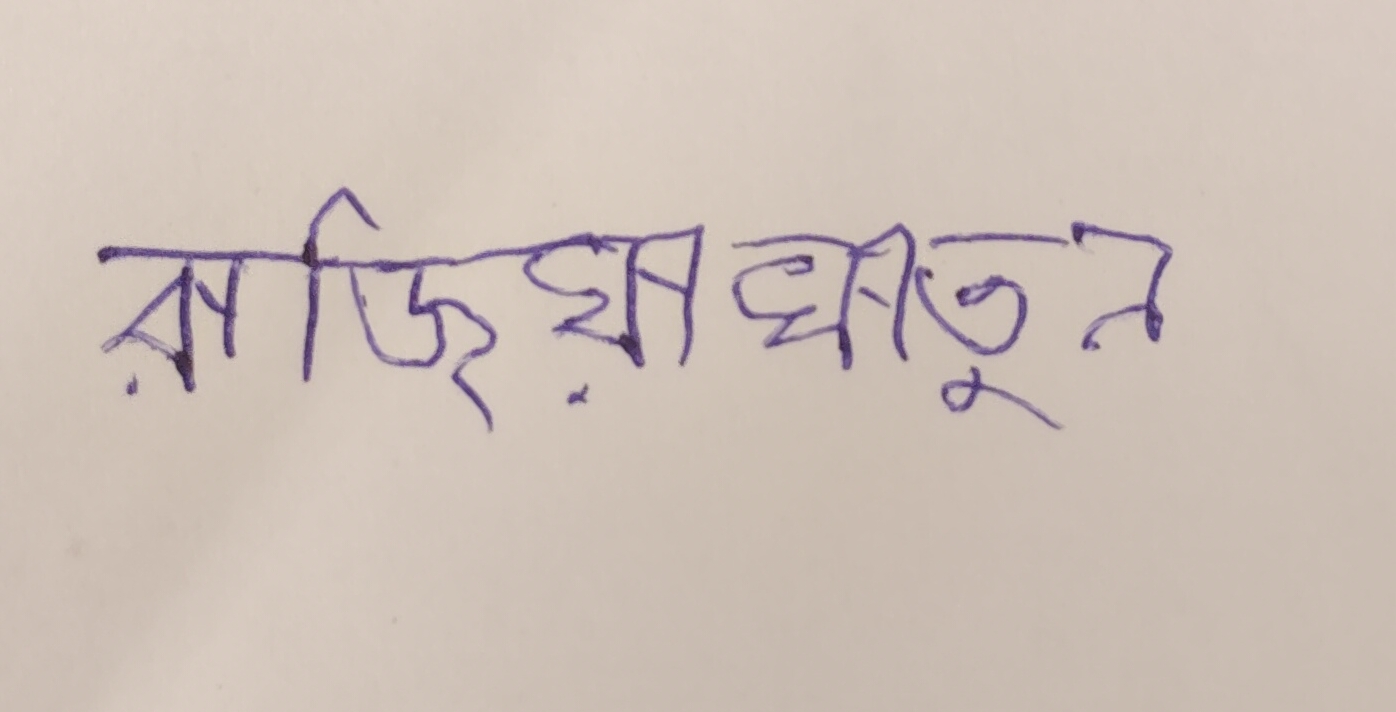 রাজিয়া খাতুন